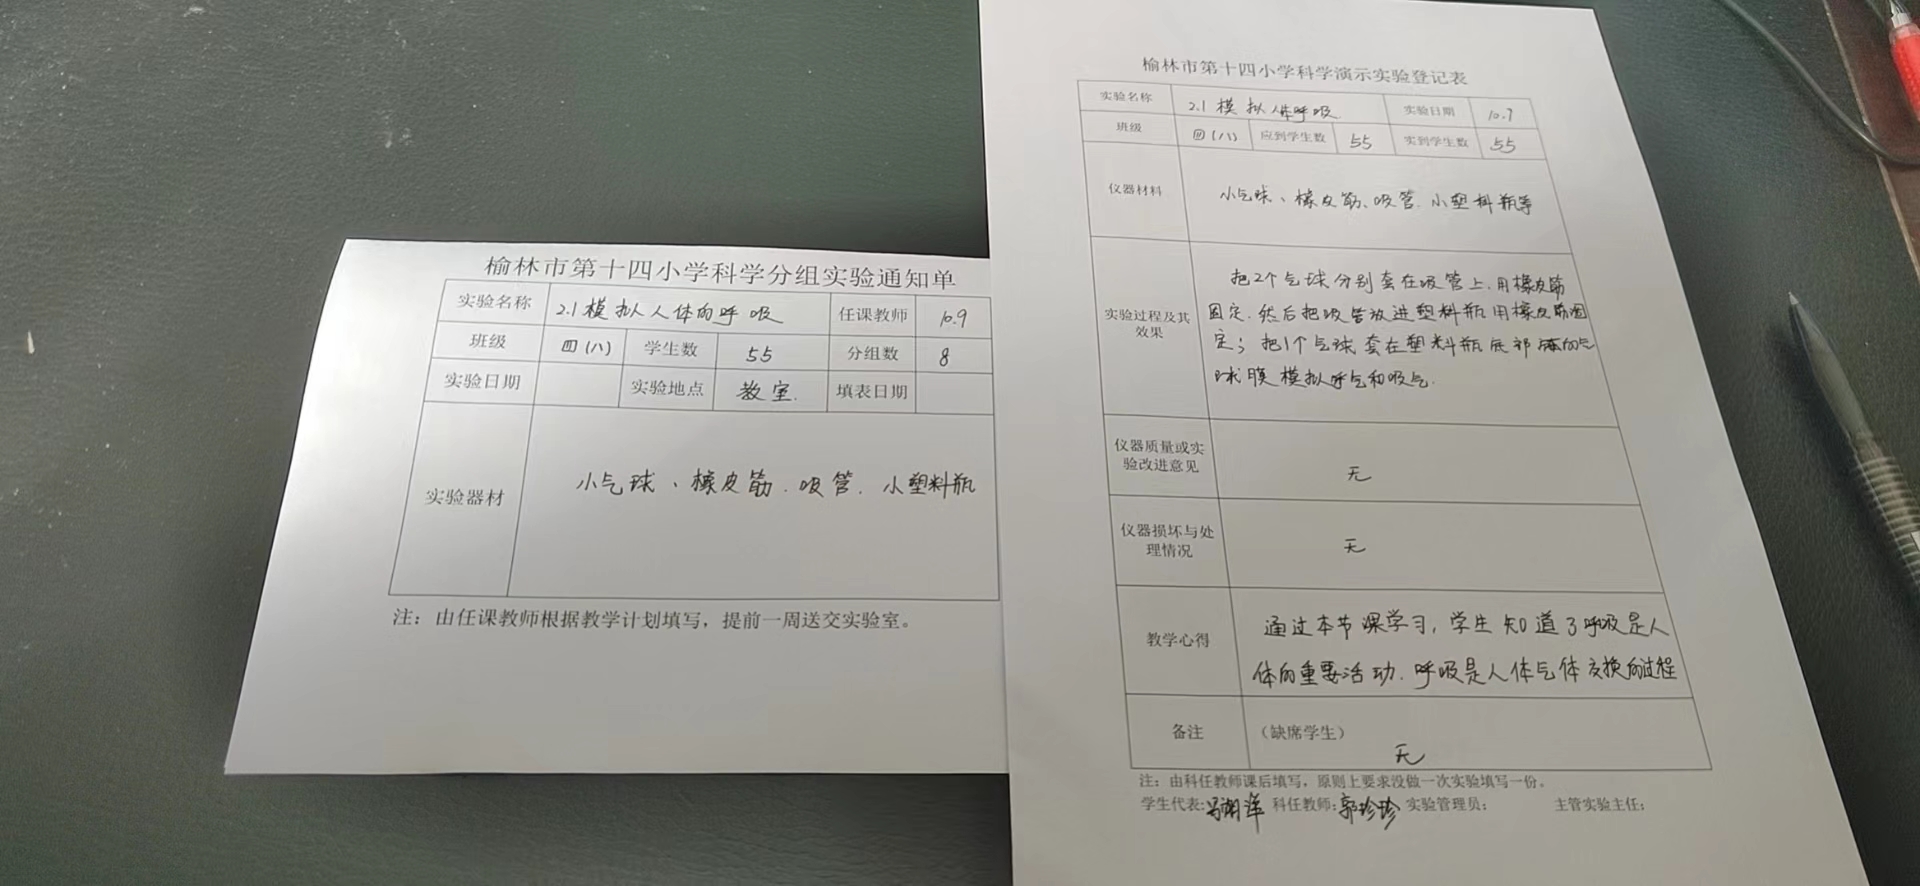 榆林市第十四小学科学分组实验通知单
实验名称 2.1模拟人体的呼吸 任课教师 10.9
班级 四(八) 学生数 55 分组数 8
实验日期 实验地点 教室. 填表日期
实验器材 小气球、橡皮筋.吸管.小塑料瓶
注：由任课教师根据教学计划填写，提前一周送交实验室。
榆林市第十四小学科学演示实验登记表
实验名称 2.1模拟人体呼吸. 实验日期 10.9
班级 四(八) 应到学生数 55 实到学生数 55
仪器材料 小气球、橡皮筋、吸管.小塑料瓶等
实验过程及其
效果
把2个气球分别套在吸管上.用橡皮筋
固定.然后把吸管放进塑料瓶用橡皮筋固
定；把1个气球套在塑料瓶底部 的气
球膜模拟呼气和吸气.
仪器质量或实
验改进意见
无
仪器损坏与处
理情况
无
教学心得
通过本节课学习，学生知道了呼吸是人
体的重要活动.呼吸是人体气体交换的过程
备注 （缺席学生）
无
注：由科任教师课后填写，原则上要求没做一次实验填写一份。
学生代表: 科任教师:郭珍珍 实验管理员: 主管实验主任: